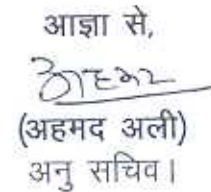 आज्ञा से,
अहमद
(अहमद अली)
अनु सचिव।